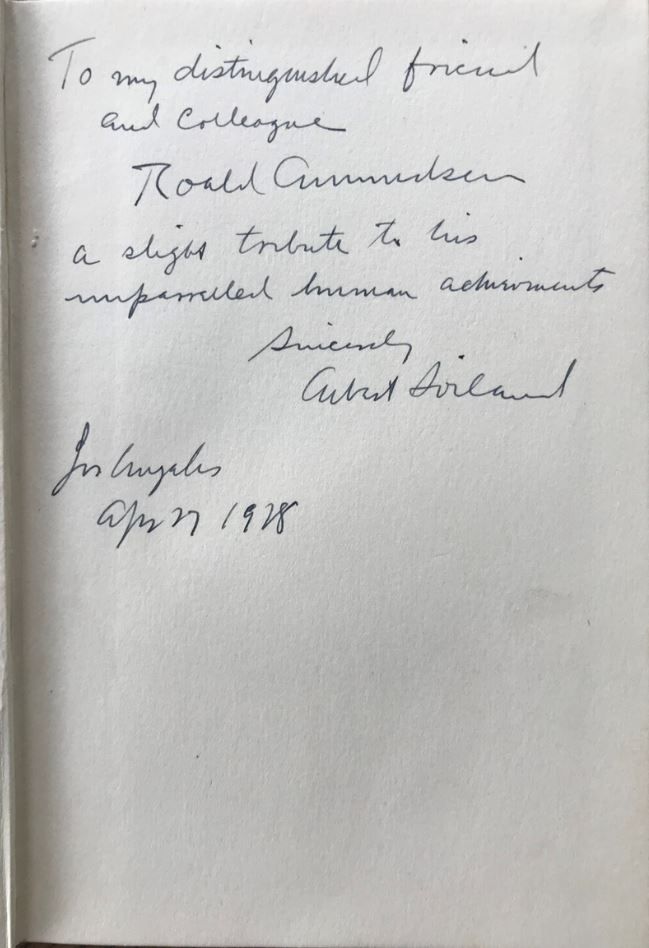 To my distinguished friend
and Colleague
Roald Ammundsen
a slight tribute to his
unparrelled human achievments
Sincerely
Albert Soiland
Los Angeles
Apr 27 1928